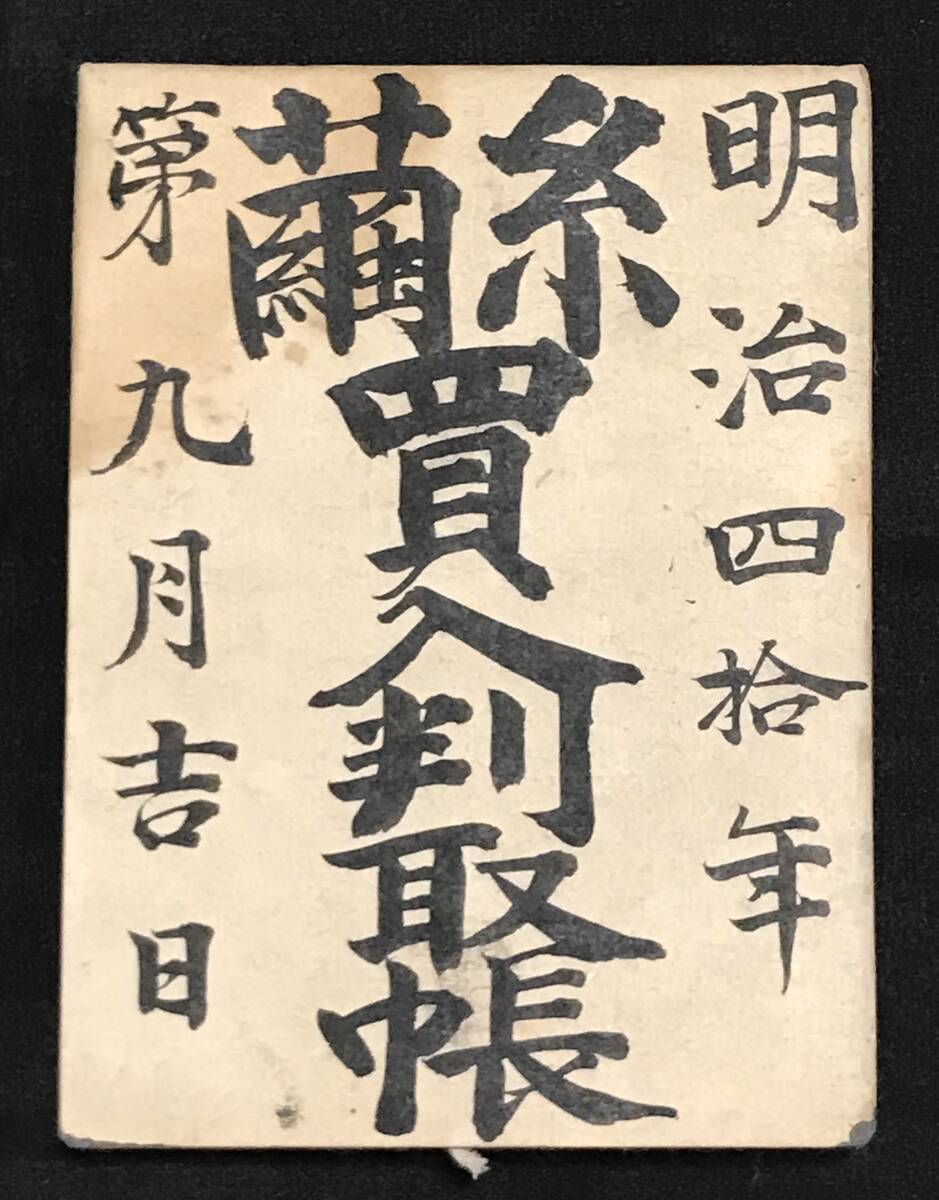 明治四拾年
糸繭買入判取帳
第九月吉日